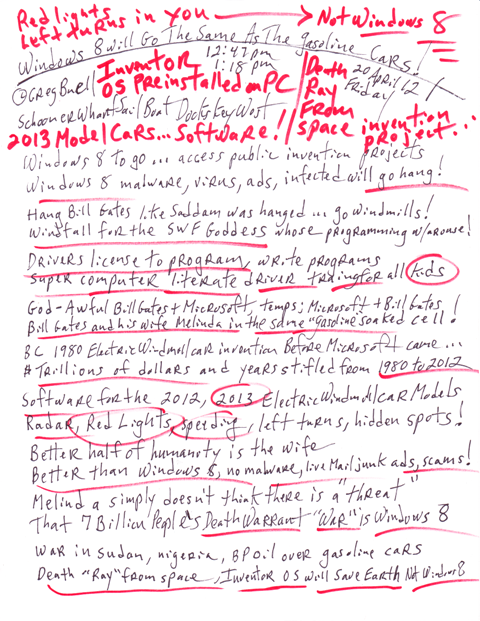 Red lights
Left turns in you → Not Windows 8
Windows 8 will Go The Same As The gasoline Cars!
12:47 pm
1:18 pm
@GREG Buell/Inventor
OS PReinstalled on PC
Schooner Wharf Sail Boat Docks Key West
Death Ray From space invention project...
20 April 12
Friday
2013 Model Cars... Software!
Windows 8 to go... access public invention projects
Windows 8 malware, virus, ads, infected will go hang!
Hang Bill Gates like Saddam was hanged... go windmills!
Windfall for the SWF Goddess whose programming w/arouse!
Drivers license to program, write programs
Super computer literate driver training for all kids
God-Awful Bill Gates + Microsoft, temps; Microsoft + Bill Gates!
Bill Gates and his wife Melinda in the same "Gasoline soaked cell!
BC 1980 Electric Windmill car invention Before Microsoft came...
# Trillions of dollars and years stifled from 1980 to 2012
Software for the 2012, 2013 Electric Windmill car Models
Radar, Red Lights, speeding, left turns, hidden spots!
Better half of humanity is the wife
Better than Windows 8, no malware, live Mail junk ads, scams!
Melinda simply doesn't think there is a "threat"
That 7 Billion People's Death Warrant "War" is Windows 8
War in Sudan, nigeria, BP oil over gasoline cars
Death "Ray" from space, Inventor OS will Save Earth Not Windows 8